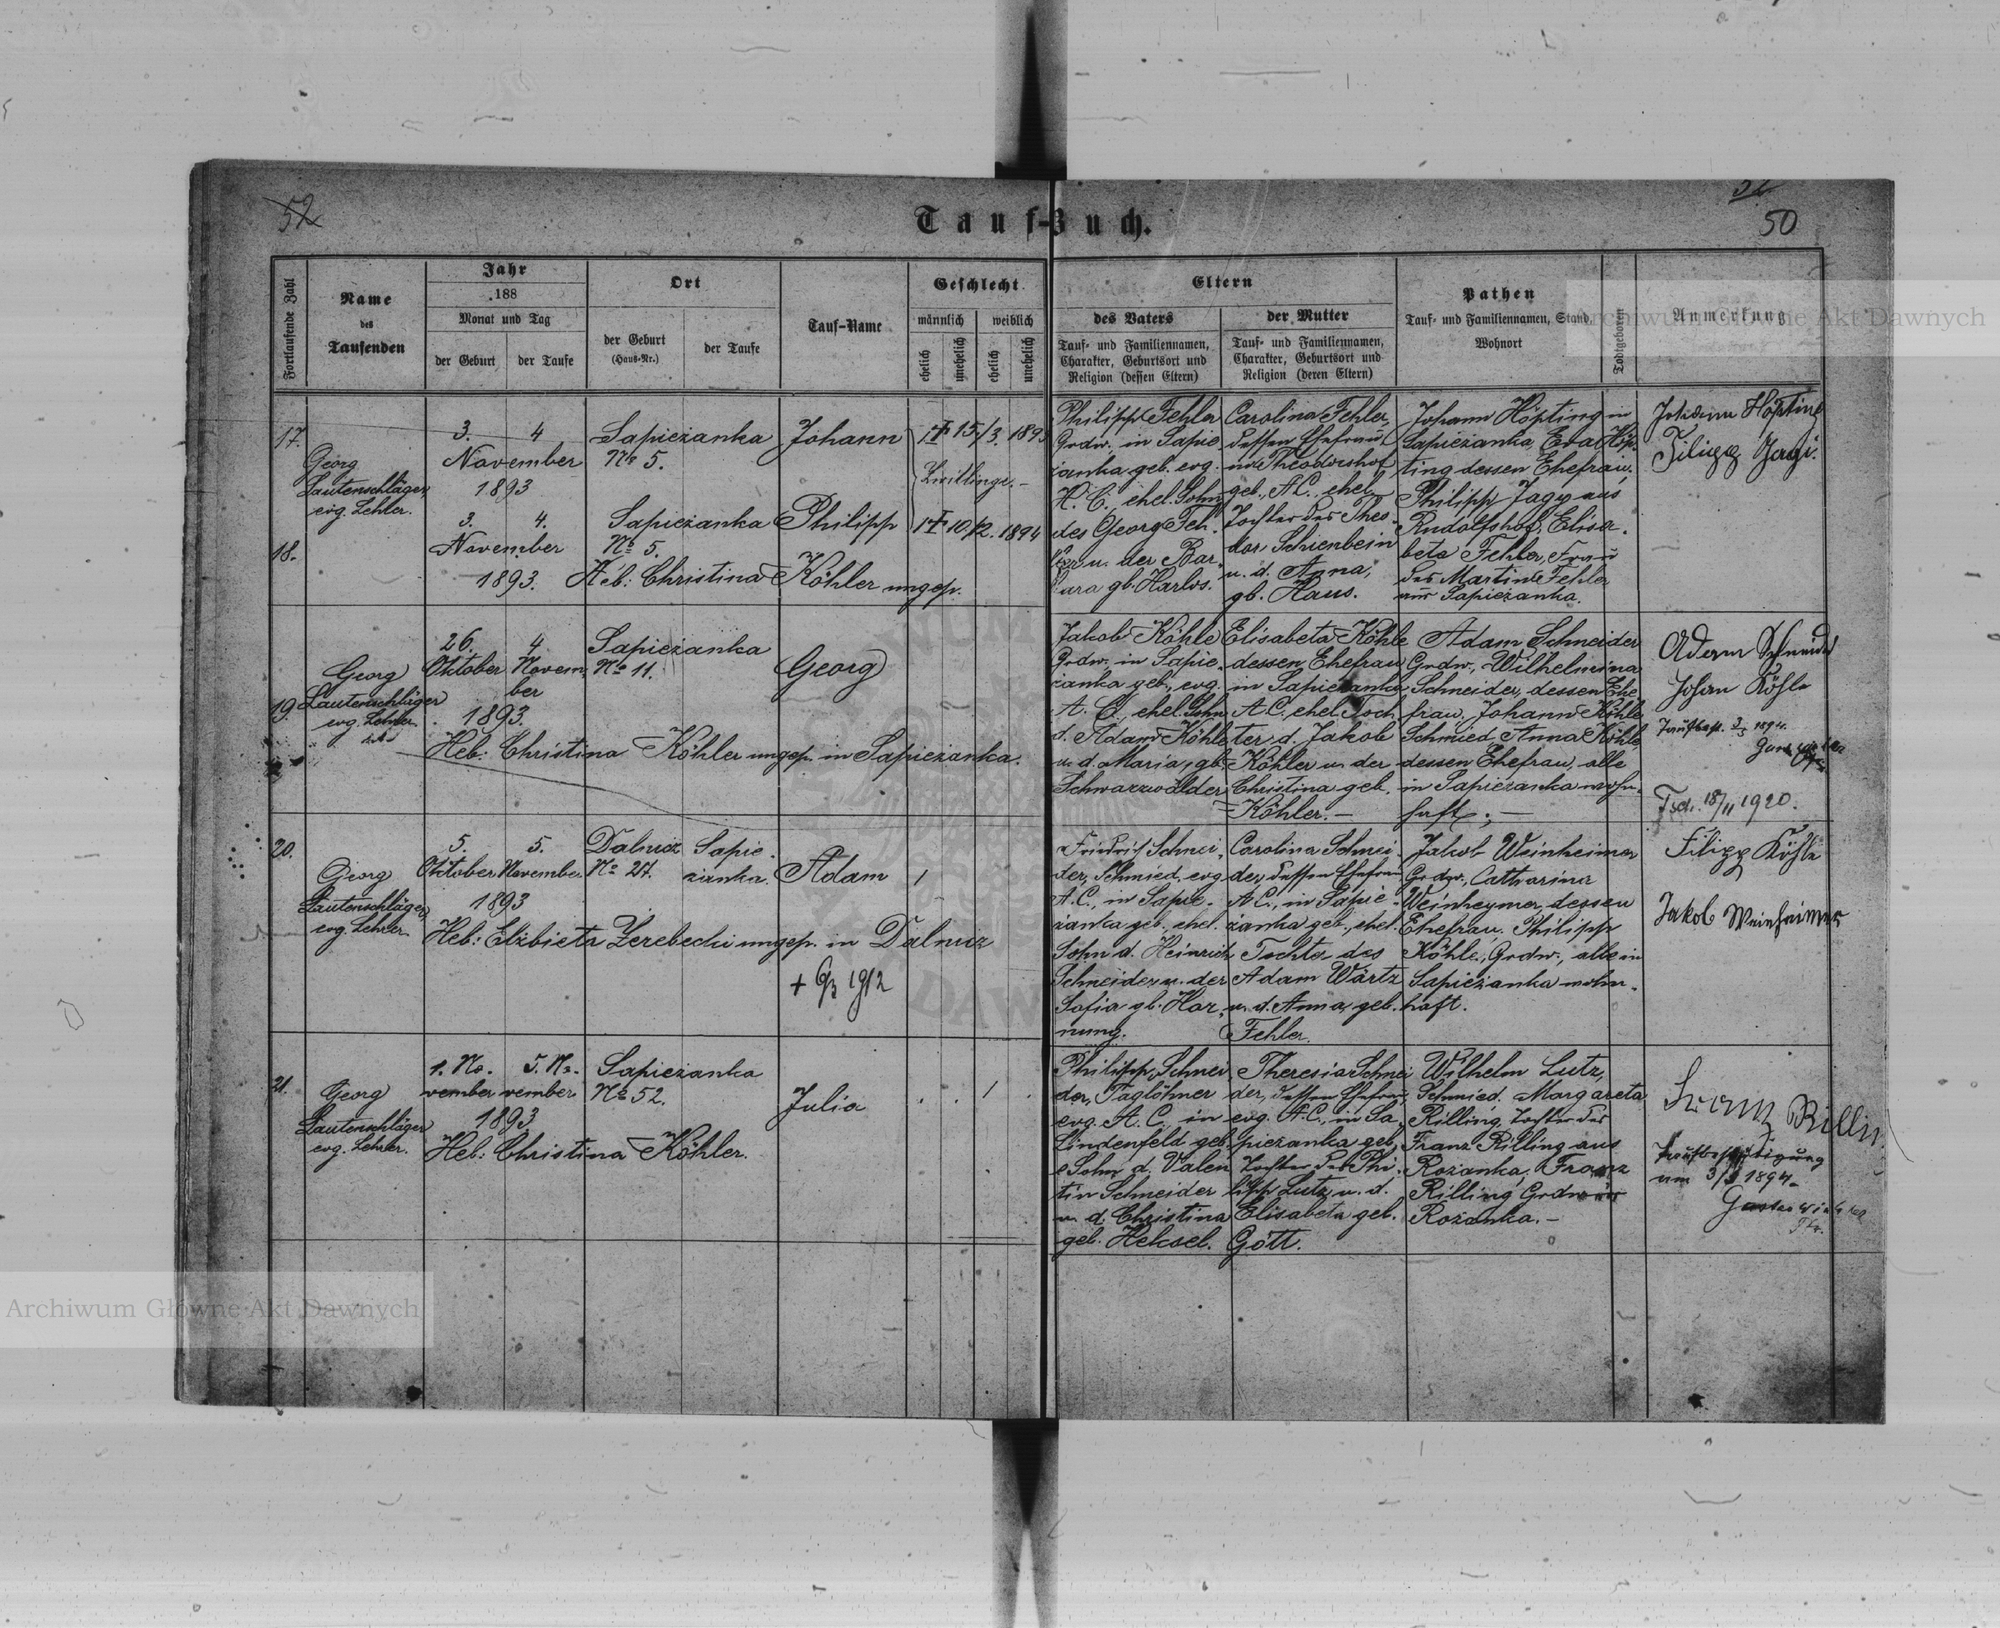 52
Tauf-Buch.
50
Fortlaufende Zahl
Name
des
Taufenden
Jahr
188
Monat und Tag
der Geburt
der Taufe
Ort
der Geburt
(Haus-Nr.)
der Taufe
Tauf-Name
Geschlecht
männlich
weiblich
ehelich
unehelich
ehelich
unehelich
Eltern
des Vaters
Tauf- und Familiennamen,
Charakter, Geburtsort und
Religion (dessen Eltern)
der Mutter
Tauf- und Familiennamen,
Charakter, Geburtsort und
Religion (deren Eltern)
Pathen
Tauf- und Familiennamen, Stand,
Wohnort
Todtgeboren
Anmerkung
Archiwum Główne Akt Dawnych
17.
Georg
Lautenschläger
evg. Lehrer.
3. 4
November
1893
Sapiezanka
No 5.
Johann
Zwillinge.
18.
3. 4.
November
1893.
Sapiezanka
No 5.
Philipp
1894
Heb: Christina Köhler ungep.
Philipp Fehler
Grdw. in Sapie
zanka geb. evg.
H. C., ehel. Sohn
des Georg Feh.
u. der Bar
bara gb. Harlos.
Carolina Fehler,
dessen Ehefrau
Theodorshof
geb., A.C., ehel.
Tochter des Theo
dor Schienbein
u. d. Anna,
gb. Haus.
Johann Höpting in
Sapiezanka, Eva Höp
ting dessen Ehefrau,
Philipp Jagy aus
Rudolfshof, Elisa
beta Fehler, Frau
des Martin Fehler
aus Sapiezanka.
Johann Höpting
Filipp Jagi.
19.
Georg
Lautenschläger
evg. Lehrer
26. 4.
Oktober Novem
ber
1893.
Sapiezanka
No 11.
Georg
Heb: Christina Köhler ungep. in Sapiezanka.
Jakob Köhle
Grdw. in Sapie
zanka geb., evg.
A. C., ehel. Sohn
d. Adam Köhle
u. d. Maria, gb.
Schwarzwälder
Elisabeta Köhle
dessen Ehefrau
in Sapiezanka
A C, ehel. Toch
ter d. Jakob
Köhler u. der
Christina geb.
Köhler.
Adam Schneider
Grdw., Wilhelmina
Schneider, dessen Ehe
frau, Johann Köhle
Schmied Anna Köhle
dessen Ehefrau, alle
in Sapiezanka wohn
haft;
Adam Schneider
Johan Köhle
1894.
18/11 1920.
20.
Georg
Lautenschläger
evg. Lehrer
5. 5.
Oktober November
1893
Dalnicz
No 21.
Sapie
zanka.
Adam
1
Heb: Elżbieta Zerebecki ungep. in Dalnicz
1912
Friedrich Schnei
der, Schmied, evg
A.C., in Sapie
zanka geb., ehel.
Sohn d. Heinrich
Schneider u. der
Sofia gb. Hor
nung.
Carolina Schnei
der, dessen Ehefrau
A C., in Sapie
zanka geb., ehel.
Tochter des
Adam Wärtz
u. d. Anna, geb.
Fehler.
Jakob Weinheimer
Grdw., Catharina
Weinheymer, dessen
Ehefrau. Philipp
Köhle, Grdw., alle in
Sapiezanka wohn
haft.
Filipp Köhle
Jakob Weinheimer
21.
Georg
Lautenschläger
evg. Lehrer.
1. No. 5. No.
vember vember
1893
Sapiezanka
No 52.
Julia
1
Heb: Christina Köhler.
Philipp Schnei
der, Taglöhner
evg. A.C. in
Lindenfeld geb.,
Sohn d. Valen
tin Schneider
u. d. Christina
geb. Heksel.
Theresia Schnei
der, dessen Ehefrau,
evg. A.C., in Sa
piezanka geb,
Tochter des Phi
lipp Lutz u. d.
Elisabeta geb.
Gött.
Wilhelm Lutz,
Schmied, Margareta
Rilling, Tochter des
Franz Rilling aus
Rozanka, Franz
Rilling, Grdw. aus
Rozanka.
Franz Rilling
Taufbestätigung
am 3/3 1894
Archiwum Główne Akt Dawnych